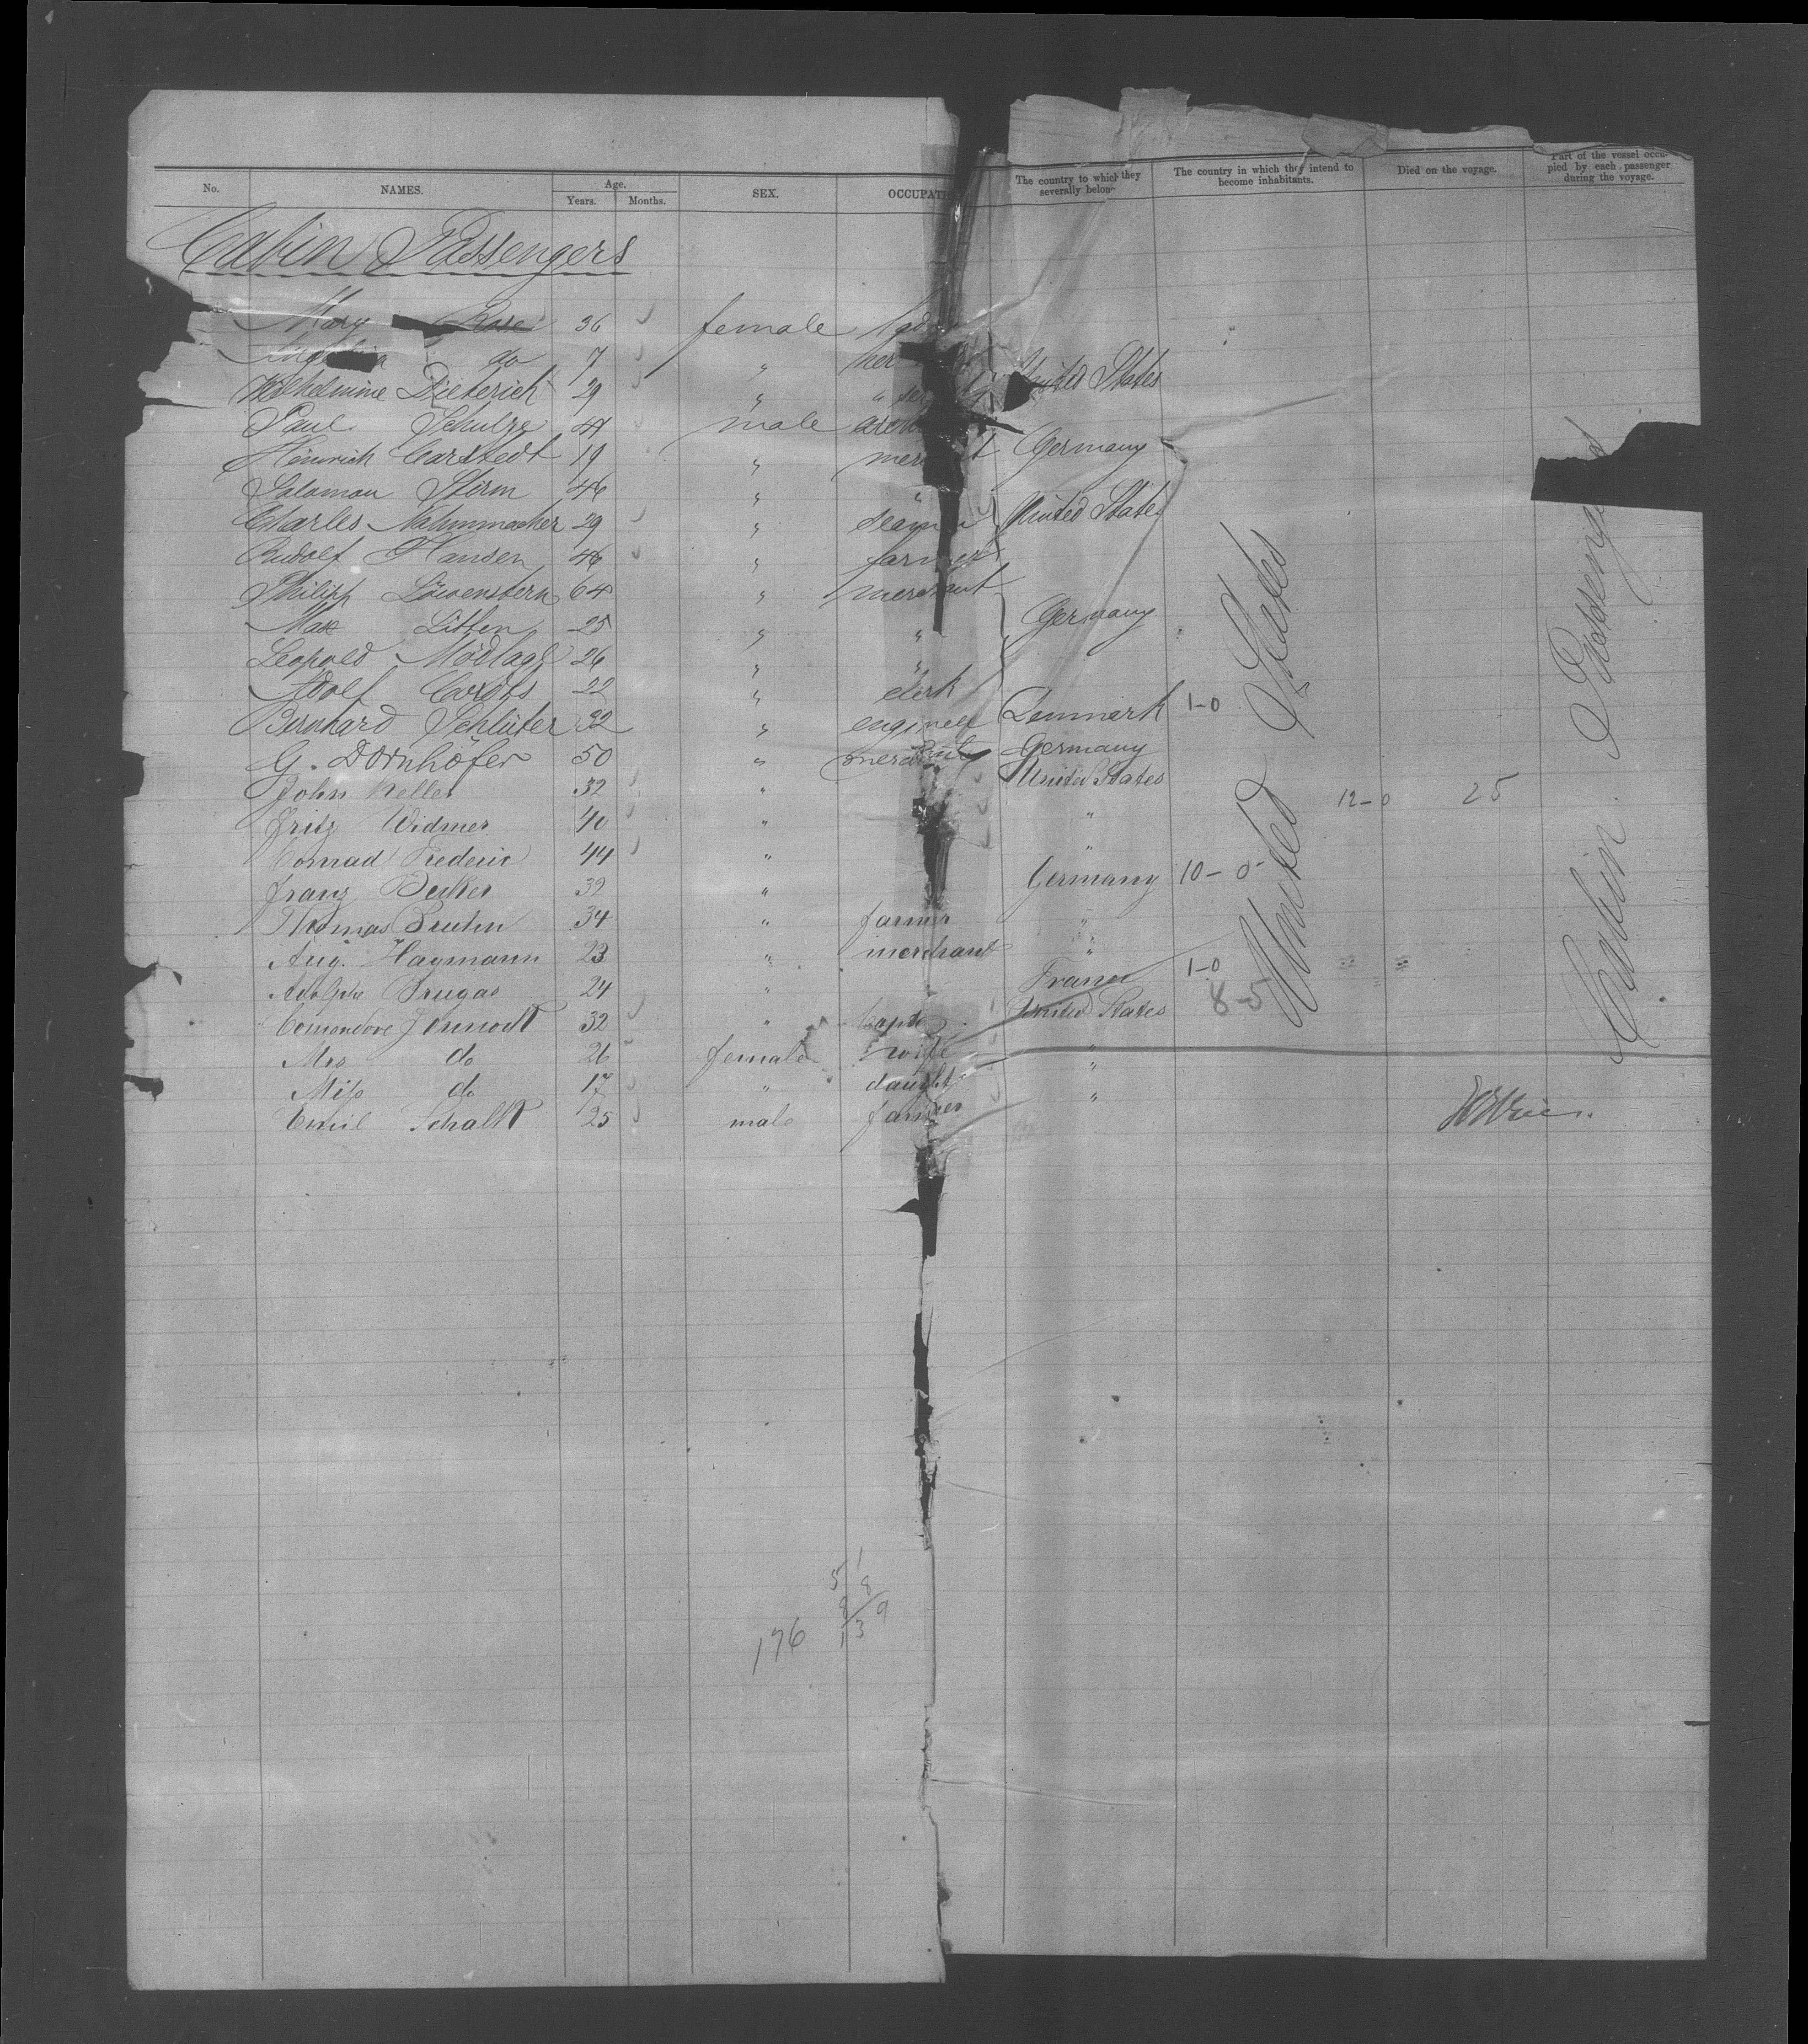 No. NAMES. Age. Years. Months. SEX. OCCUPATI The country to which they severally belon The country in which they intend to become inhabitants. Died on the voyage. Part of the vessel occupied by each passenger during the voyage.
Cabin Passengers
Mary Rose 36 female
do 7 " her
Wilhelmine Dieterich 29 " " United States
Paul Schulze male
Heinrich Carstedt 19 " mer t Germany
Salomon Stirm 46 " "
Charles Nahmmacher 29 " seaman United States
Rudolf Hansen 46 " farmer
Philiph Löwenstern 64 " merchant
Max Litten 25 " " Germany
Leopold 26 " "
Adolf Cordts 22 " clerk
Bernhard Schlüter 32 " engineer Denmark 1-0
G. Dornhöfer 50 " merchant Germany
John Keller 32 " United States
Fritz Widmer 40 " " 12-0 25
Conrad Frederic 44 " "
Franz Becker 39 " Germany 10-0
Thomas Bruhn 34 " farmer "
Aug. Hagmann 23 " merchant "
Adolphe Brugas 24 " France 1-0
32 " Capt United States 8-5
Mrs do 26 female wife "
Miss do 17 " daught "
Emil Schalk 25 male farmer "
United States
Cabin Passenger
5 1
8
8 9
1 3
176